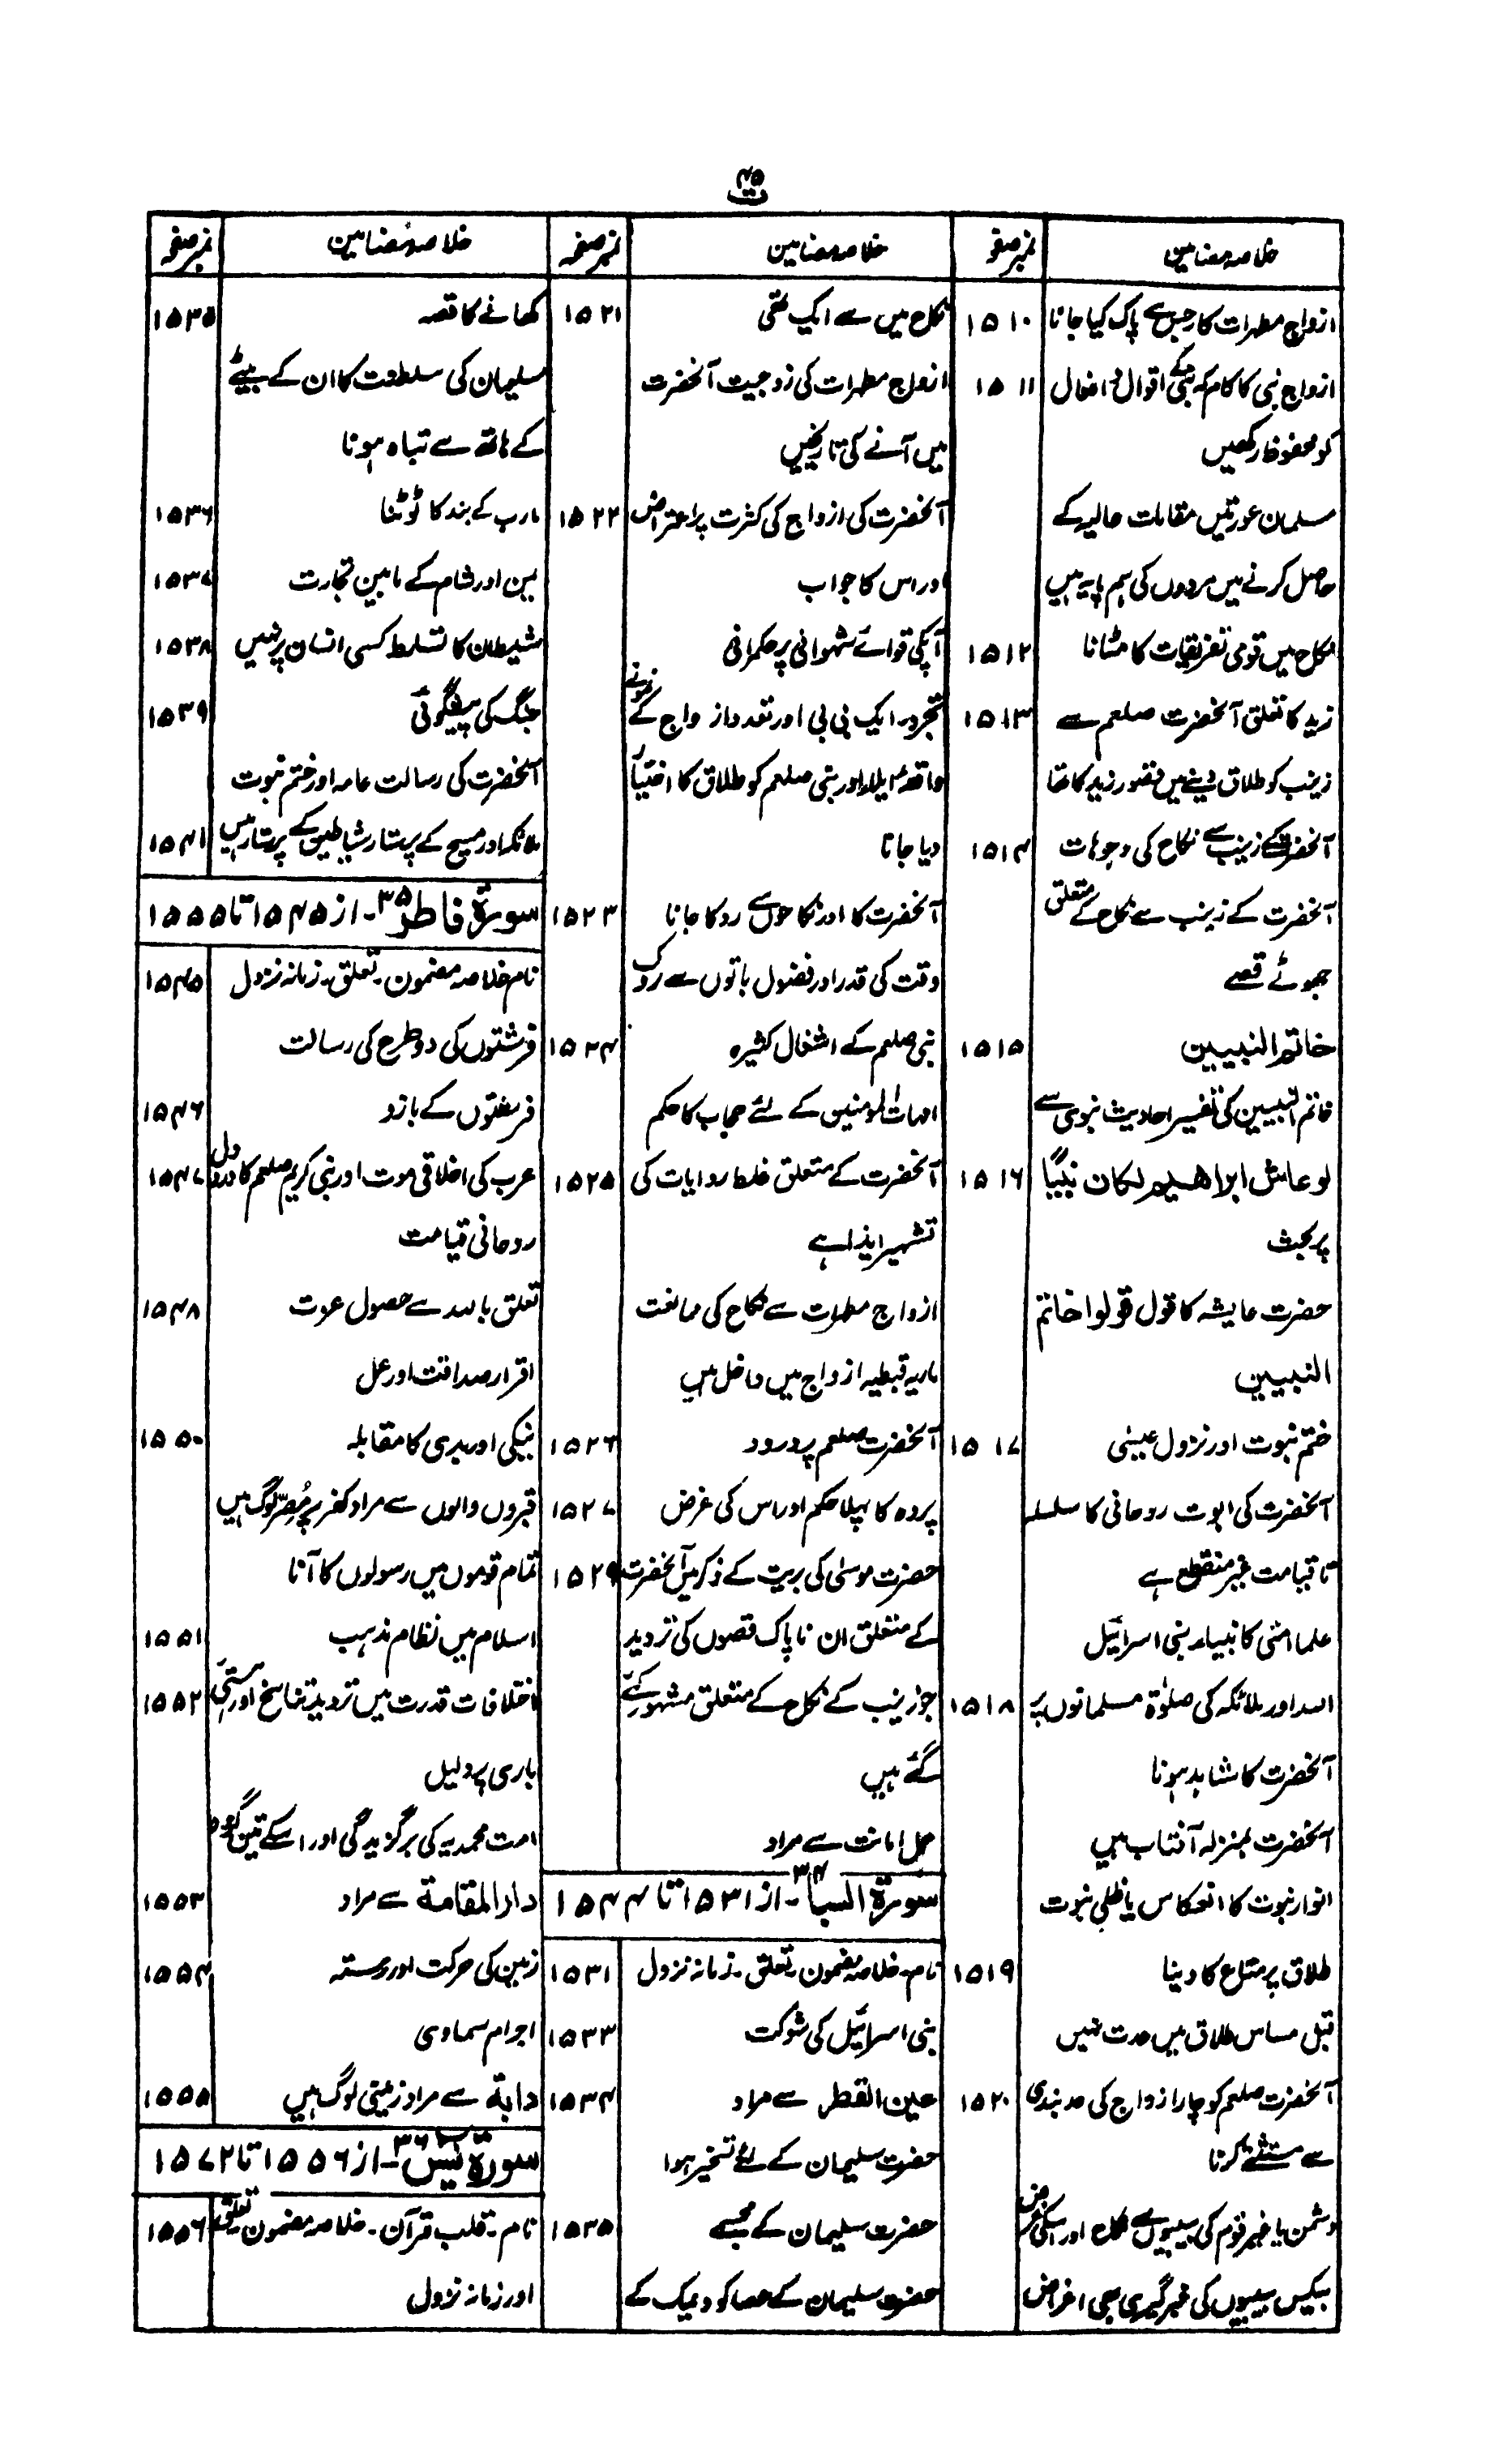 ۴۵
خلاصہ مضامین
نمبر صفحہ
ازواج مطہرات کا رجس سے پاک کیا جانا ۱۵۱۰
ازواج نبی کا کام کہ نبی کے اقوال و افعال ۱۵۱۱
کو محفوظ رکھیں
مسلمان عورتیں مقامات عالیہ کے
حاصل کرنے میں مردوں کی ہم پایہ ہیں
نکاح میں قومی تفریقات کا مٹانا ۱۵۱۲
زید کا تعلق آنحضرت صلعم سے ۱۵۱۳
زینب کو طلاق دینے میں قصور زید کا تھا
آنحضرت کے زینب سے نکاح کی وجوہات ۱۵۱۴
آنحضرت کے زینب سے نکاح کے متعلق
جھوٹے قصے
خاتم النبیین ۱۵۱۵
خاتم النبیین کی تفسیر احادیث نبوی سے
لو عاش ابراھیم لکان نبیًا ۱۵۱۶
پر بحث
حضرت عایشہ کا قول قولوا خاتم
النبیین
ختم نبوت اور نزول عیسٰی ۱۵۱۷
آنحضرت کی ابوت روحانی کا سلسلہ
تا قیامت غیر منقطع ہے
علما امتی کانبیاء بنی اسرائیل
اللہ اور ملائکہ کی صلوٰۃ مسلمانوں پر ۱۵۱۸
آنحضرت کا شاہد ہونا
آنحضرت بمنزلہ آفتاب ہیں
انوار نبوت کا انعکاس یا ظلی نبوت
طلاق پر متاع کا دینا ۱۵۱۹
قبل مساس طلاق میں عدت نہیں
آنحضرت صلعم کو چار ازواج کی حد بندی ۱۵۲۰
سے مستثنٰے کرنا
دشمن یا غیر قوم کی بیبیوں سے نکاح اور اسکی غرض
بیکس بیبیوں کی خبر گیری بھی اغراض
خلاصہ مضامین
نمبر صفحہ
نکاح میں سے ایک تھی ۱۵۲۱
ازواج مطہرات کی زوجیت آنحضرت
میں آنے کی تاریخیں
آنحضرت کی ازواج کی کثرت پر اعتراض ۱۵۲۲
اور اس کا جواب
آپکی قوائے شہوانی پر حکمرانی
تجرد۔ ایک بی بی اور تعدد ازواج کے نمونے
واقعہ ایلاء اور نبی صلعم کو طلاق کا اختیار
دیا جانا
آنحضرت کا اور نکاحوں سے روکا جانا ۱۵۲۳
وقت کی قدر اور فضول باتوں سے روک
نبی صلعم کے اشغال کثیرہ ۱۵۲۴
امہات المومنین کے لئے حجاب کا حکم
آنحضرت کے متعلق غلط روایات کی ۱۵۲۵
تشہیر ایذا ہے
ازواج مطہرات سے نکاح کی ممانعت
ماریہ قبطیہ ازواج میں داخل ہیں
آنحضرت صلعم پر درود ۱۵۲۶
پردہ کا پہلا حکم اور اس کی غرض ۱۵۲۷
حضرت موسٰی کی بریت کے ذکر میں آنحضرت ۱۵۲۹
کے متعلق ان ناپاک قصوں کی تردید
جو زینب کے نکاح کے متعلق مشہور کئے
گئے ہیں
حمل امانت سے مراد
سورۃ السبا ۳۴۔ از ۱۵۳۱ تا ۱۵۴۴
نام۔ خلاصہ مضمون۔ تعلق۔ زمانہ نزول ۱۵۳۱
بنی اسرائیل کی شوکت ۱۵۳۳
عین القطر سے مراد ۱۵۳۴
حضرت سلیمان کے لئے تسخیر ہوا
حضرت سلیمان کے مجسمے ۱۵۳۵
حضرت سلیمان کے عصا کو دیمک کے
خلاصہ مضامین
نمبر صفحہ
کھانے کا قصہ ۱۵۳۵
سلیمان کی سلطنت کا ان کے بیٹے
کے ہاتھ سے تباہ ہونا
مارب کے بند کا ٹوٹنا ۱۵۳۶
یمن اور شام کے مابین تجارت ۱۵۳۷
شیطان کا تسلط کسی انسان پر نہیں ۱۵۳۸
جنگ کی پیشگوئی ۱۵۳۹
آنحضرت کی رسالت عامہ اور ختم نبوت
ملائکہ اور مسیح کے پرستار شیاطین کے پرستار ہیں ۱۵۴۱
سورۃ فاطر ۳۵۔ از ۱۵۴۵ تا ۱۵۵۵
نام خلاصہ مضمون۔ تعلق۔ زمانہ نزول ۱۵۴۵
فرشتوں کی دو طرح کی رسالت
فرشتوں کے بازو ۱۵۴۶
عرب کی اخلاقی موت اور نبی کریم صلعم کا درد دل ۱۵۴۷
روحانی قیامت
تعلق باللہ سے حصول عزت ۱۵۴۸
اقرار صداقت اور عمل
نیکی اور بدی کا مقابلہ ۱۵۵۰
قبروں والوں سے مراد کفر پر مُصِرّ لوگ ہیں
تمام قوموں میں رسولوں کا آنا
اسلام میں نظام مذہب ۱۵۵۱
اختلافات قدرت میں تردید تناسخ اور ہستیٔ ۱۵۵۲
باری پر دلیل
امت محمدیہ کی برگزیدگی اور اسکے تین گروہ
دارالمقامة سے مراد ۱۵۵۳
زمین کی حرکت اور رستہ ۱۵۵۴
اجرام سماوی
دابة سے مراد زمینی لوگ ہیں ۱۵۵۵
سورۃ یٰسٓ ۳۶۔ از ۱۵۵۶ تا ۱۵۷۲
نام۔ قلب قرآن۔ خلاصہ مضمون۔ تعلق ۱۵۵۶
اور زمانہ نزول